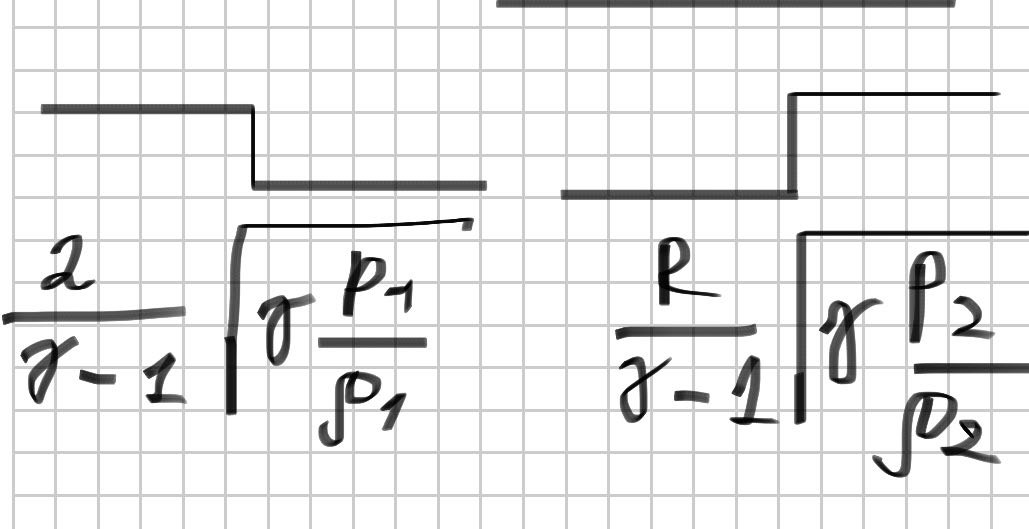 2/(γ-1) √(γ p₁/ρ₁) R/(γ-1) √(γ p₂/ρ₂)